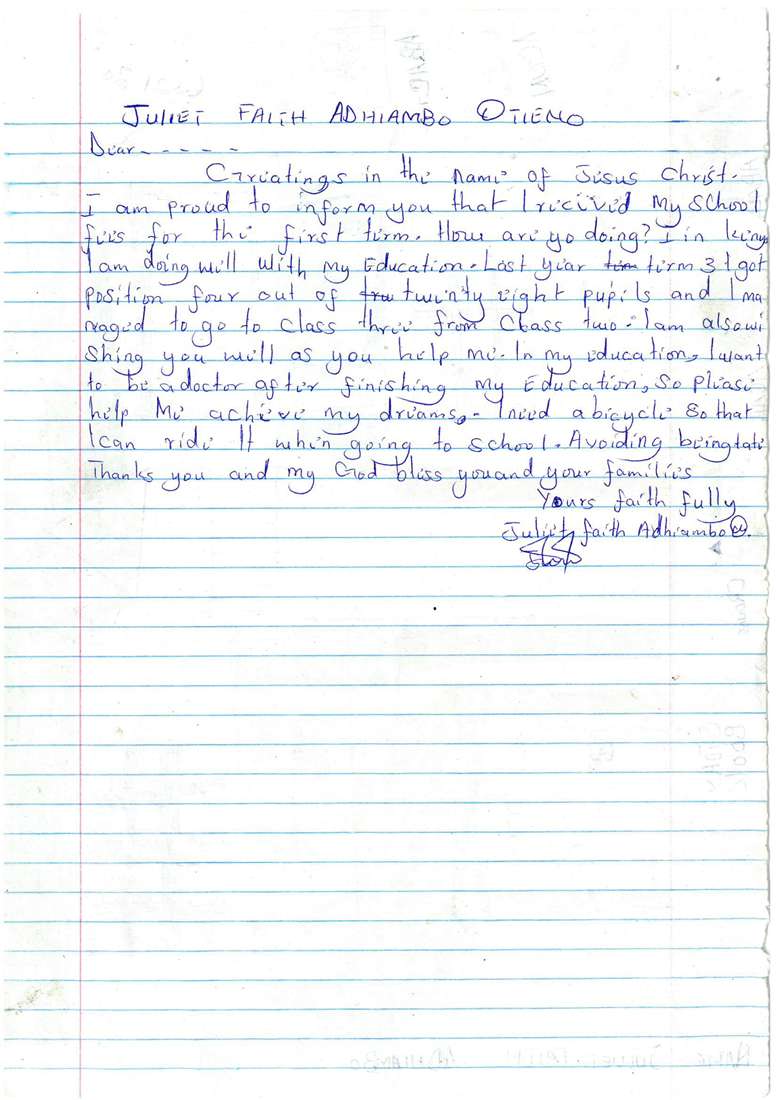 JULIET FAITH ADHIAMBO OTIENO
Dear - - - - -
Greatings in the Name of Jesus Christ.
I am proud to inform you that I recieved My School
fees for the first term. How are yo doing? I in
I am doing well with My Education. Last year term 3 I got
position four out of twenty eight pupils and I ma
naged to go to class three from Class two. I am also wi
shing you well as you help me. In my education, I want
to be a doctor after finishing my Education, So please
help Me achieve my dreams,. I need a bicycle So that
I can ride It when going to School. Avoiding being late
Thanks you and my God bless you and your families
Yours faith fully
Juliet faith Adhiambo